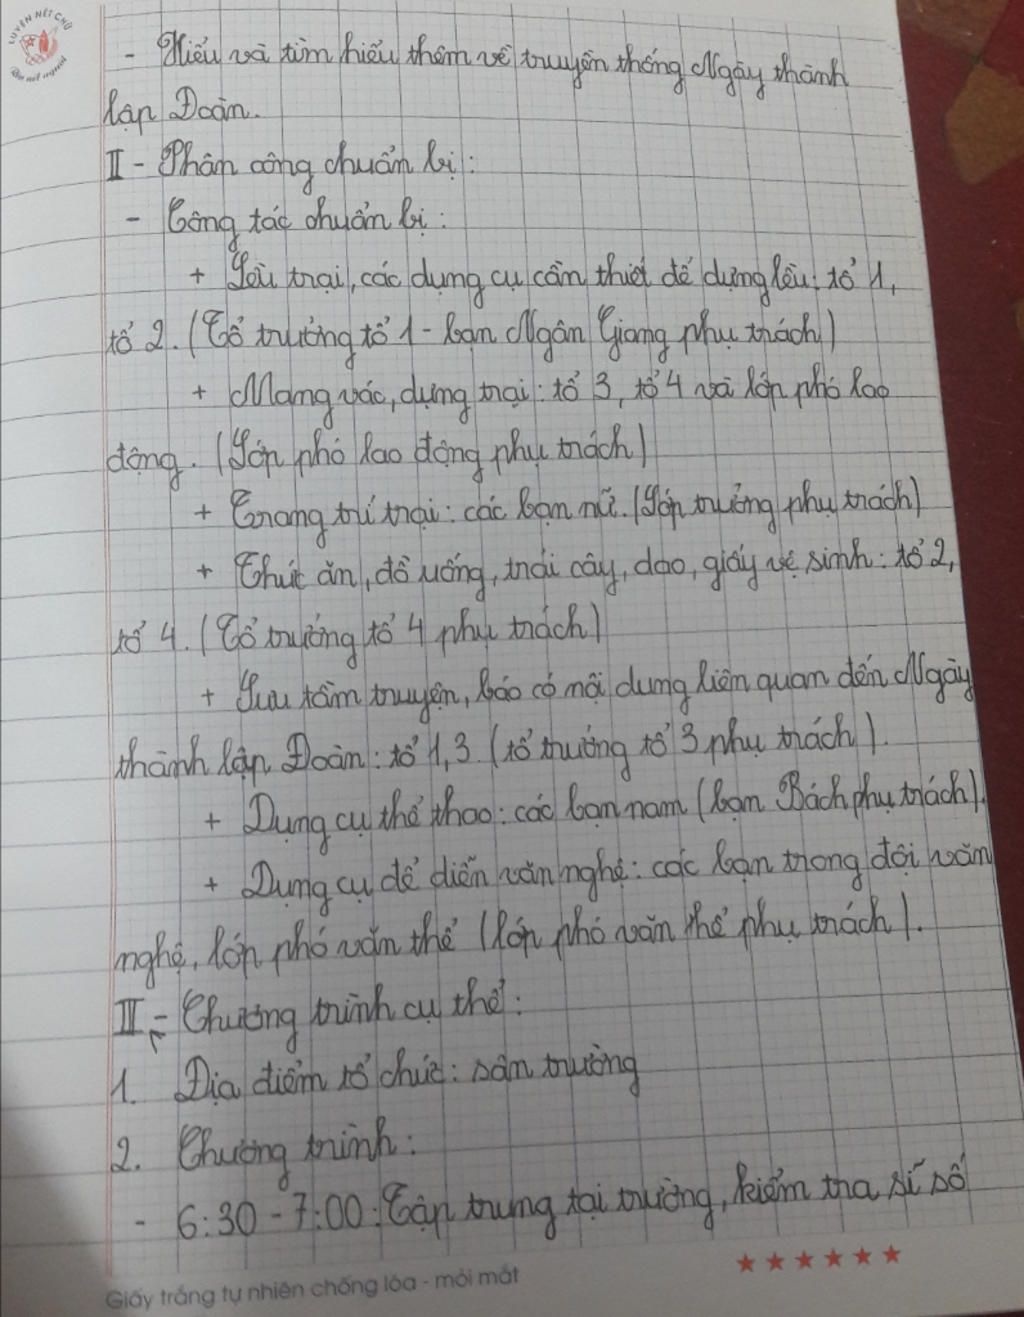 LUYỆN NÉT CHỮ
Rèn nết người
- Hiểu và tìm hiểu thêm về truyền thống Ngày thành
lập Đoàn.
II - Phân công chuẩn bị:
- Công tác chuẩn bị:
+ Lều trại, các dụng cụ cần thiết để dựng lều: tổ 1,
tổ 2. (Tổ trưởng tổ 1 - bạn Ngân Giang phụ trách)
+ Mang vác, dựng trại: tổ 3, tổ 4 và lớp phó lao
động. (Lớp phó lao động phụ trách)
+ Trang trí trại: các bạn nữ. (Lớp trưởng phụ trách)
+ Thức ăn, đồ uống, trái cây, dao, giấy vệ sinh: tổ 2,
tổ 4. (Tổ trưởng tổ 4 phụ trách)
+ Sưu tầm truyện, báo có nội dung liên quan đến Ngày
thành lập Đoàn: tổ 1, 3. (tổ trưởng tổ 3 phụ trách).
+ Dụng cụ thể thao: các bạn nam (bạn Bách phụ trách).
+ Dụng cụ để diễn văn nghệ: các bạn trong đội văn
nghệ, lớp phó văn thể (lớp phó văn thể phụ trách).
III - Chương trình cụ thể:
1. Địa điểm tổ chức: sân trường
2. Chương trình:
- 6:30 - 7:00: Tập trung tại trường, kiểm tra sĩ số
Giấy trắng tự nhiên chống lóa - mỏi mắt